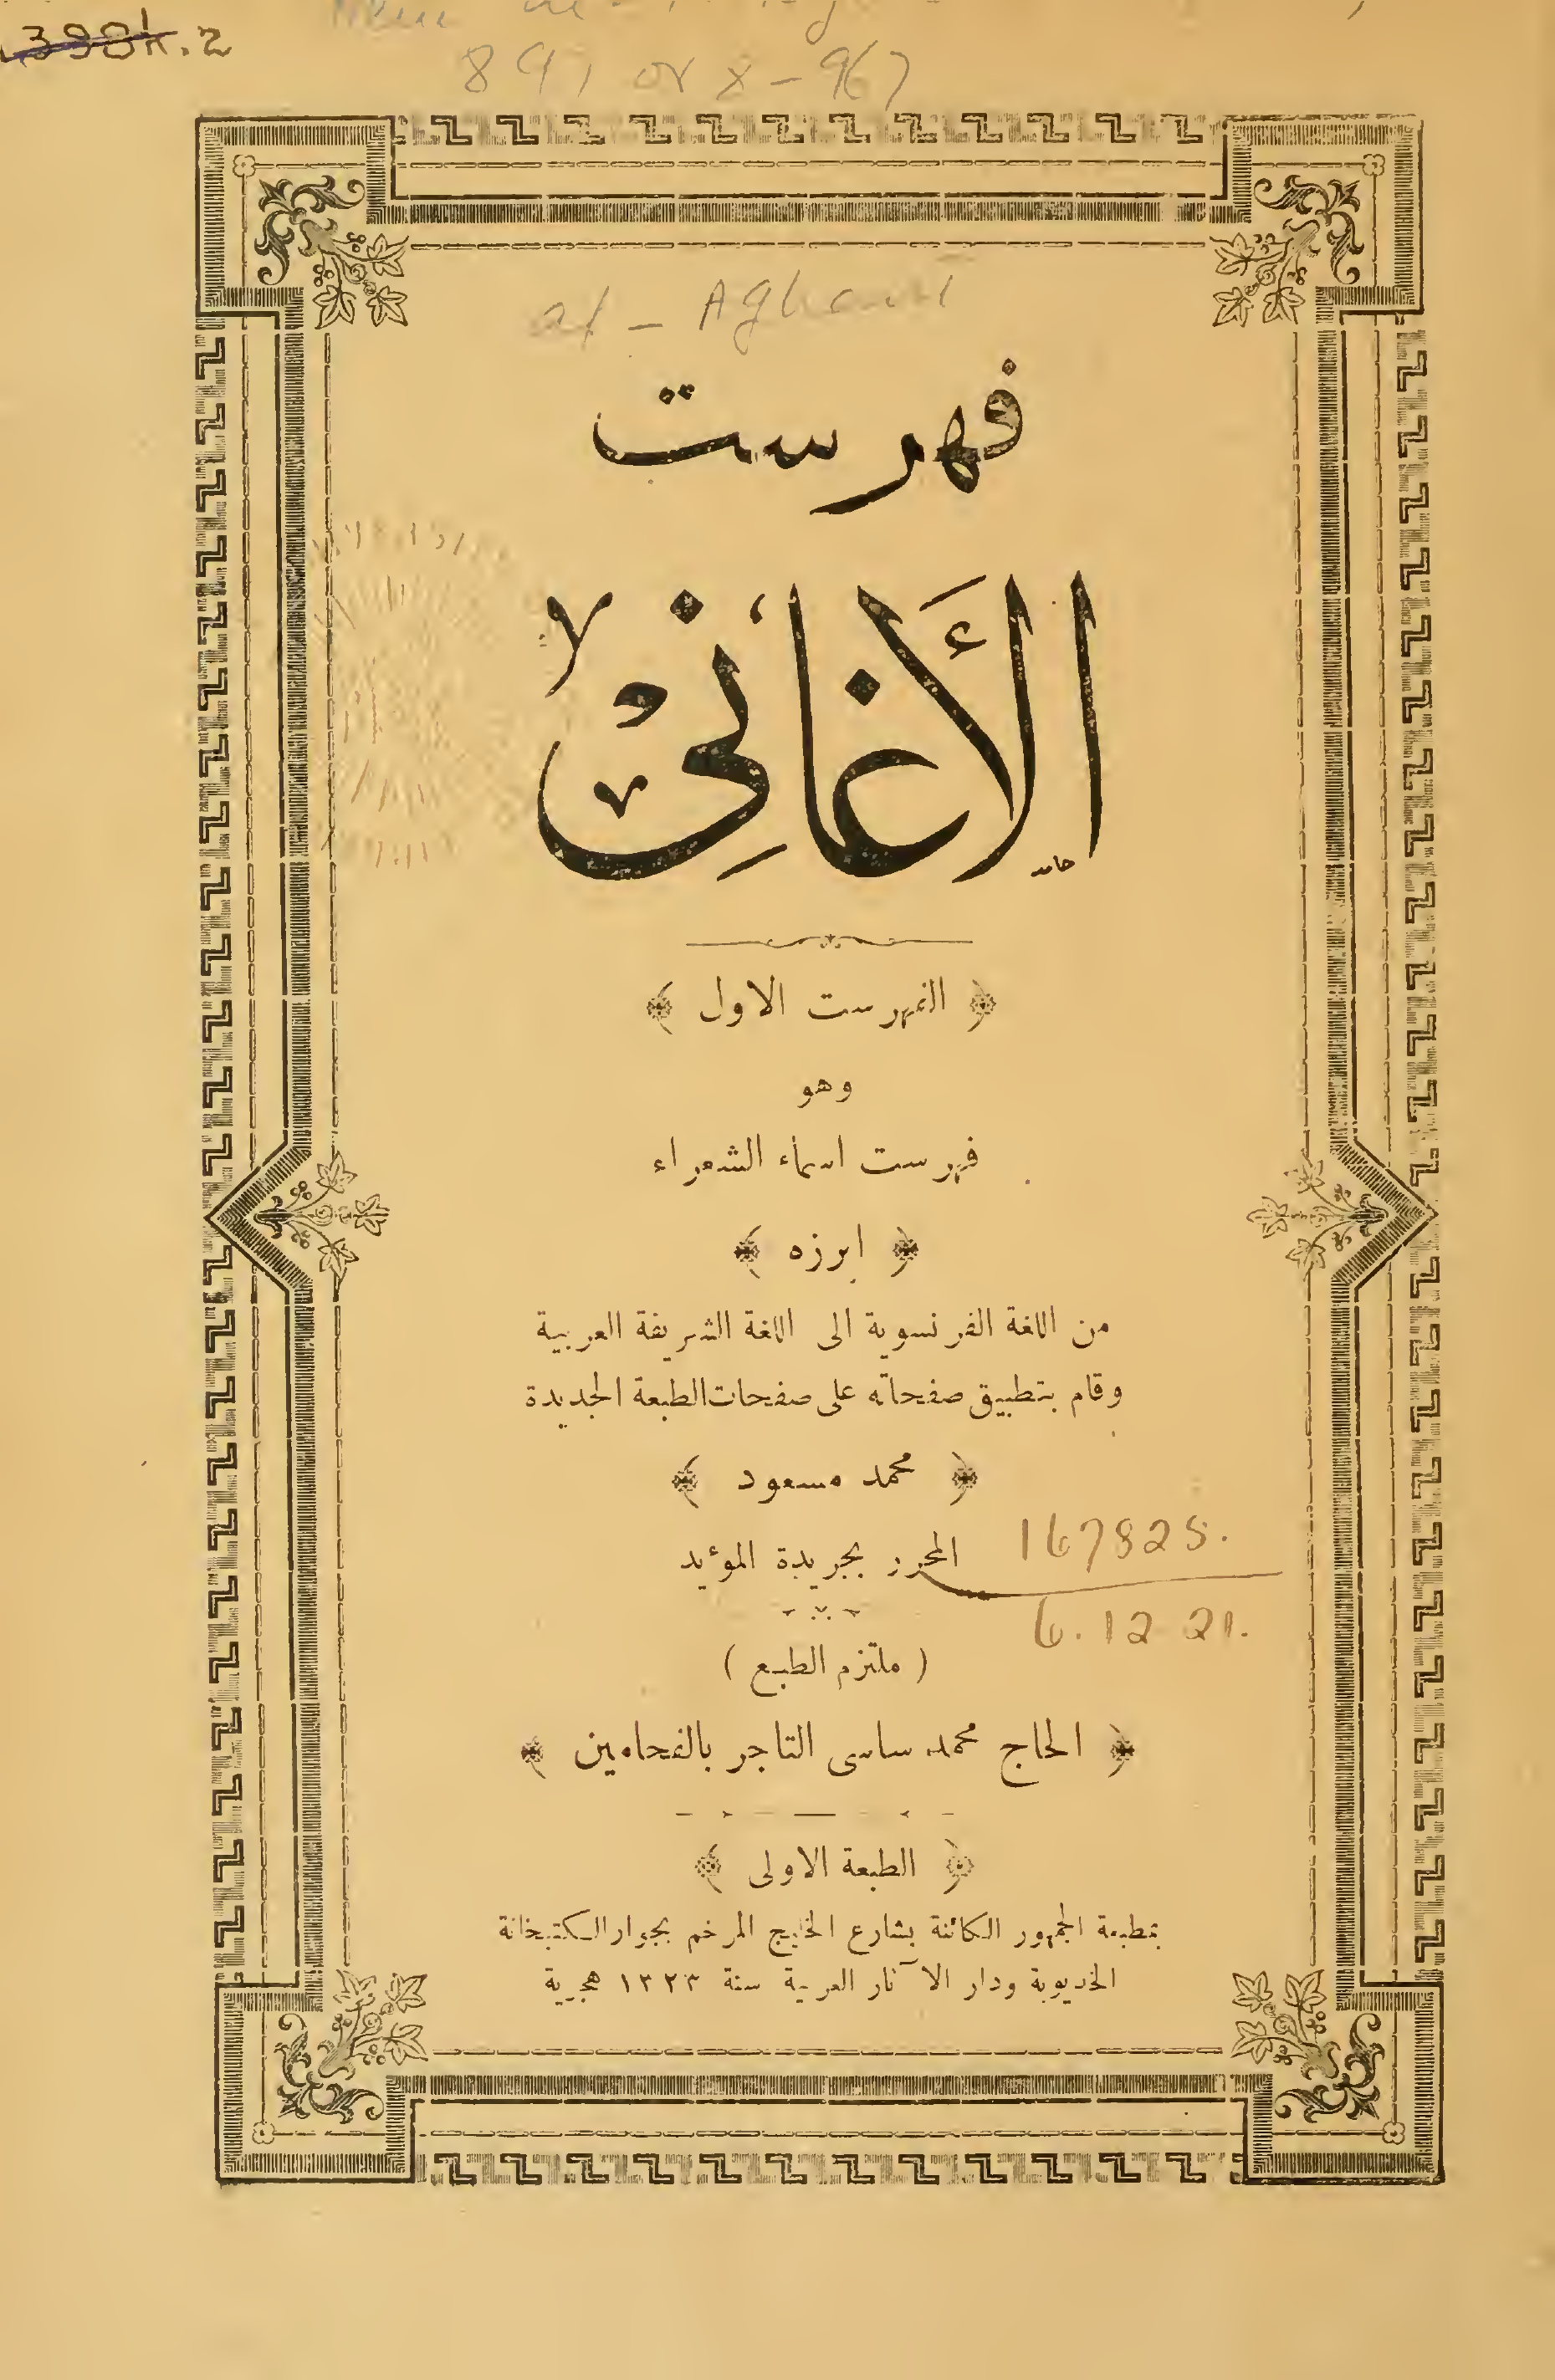 398k.2
891 or x-967
al-Aghani
فهرست
الأغانيْ
حامد
﴿ الفهرست الاول ﴾
وهو
فهرست اسماء الشعراء
﴿ ابرزه ﴾
من اللغة الفرنسوية الى اللغة الشريفة العربية
وقام بتطبيق صفحاته على صفحات الطبعة الجديدة
﴿ محمد مسعود ﴾
المحرر بجريدة المؤيد
167825.
6.12.21.
( ملتزم الطبع )
﴿ الحاج محمد ساسى التاجر بالفحامين ﴾
﴿ الطبعة الاولى ﴾
بمطبعة الجمهور الكائنة بشارع الخليج المرخم بجوار الكتبخانة
الخديوية ودار الآثار العربية سنة ١٣٢٣ هجرية